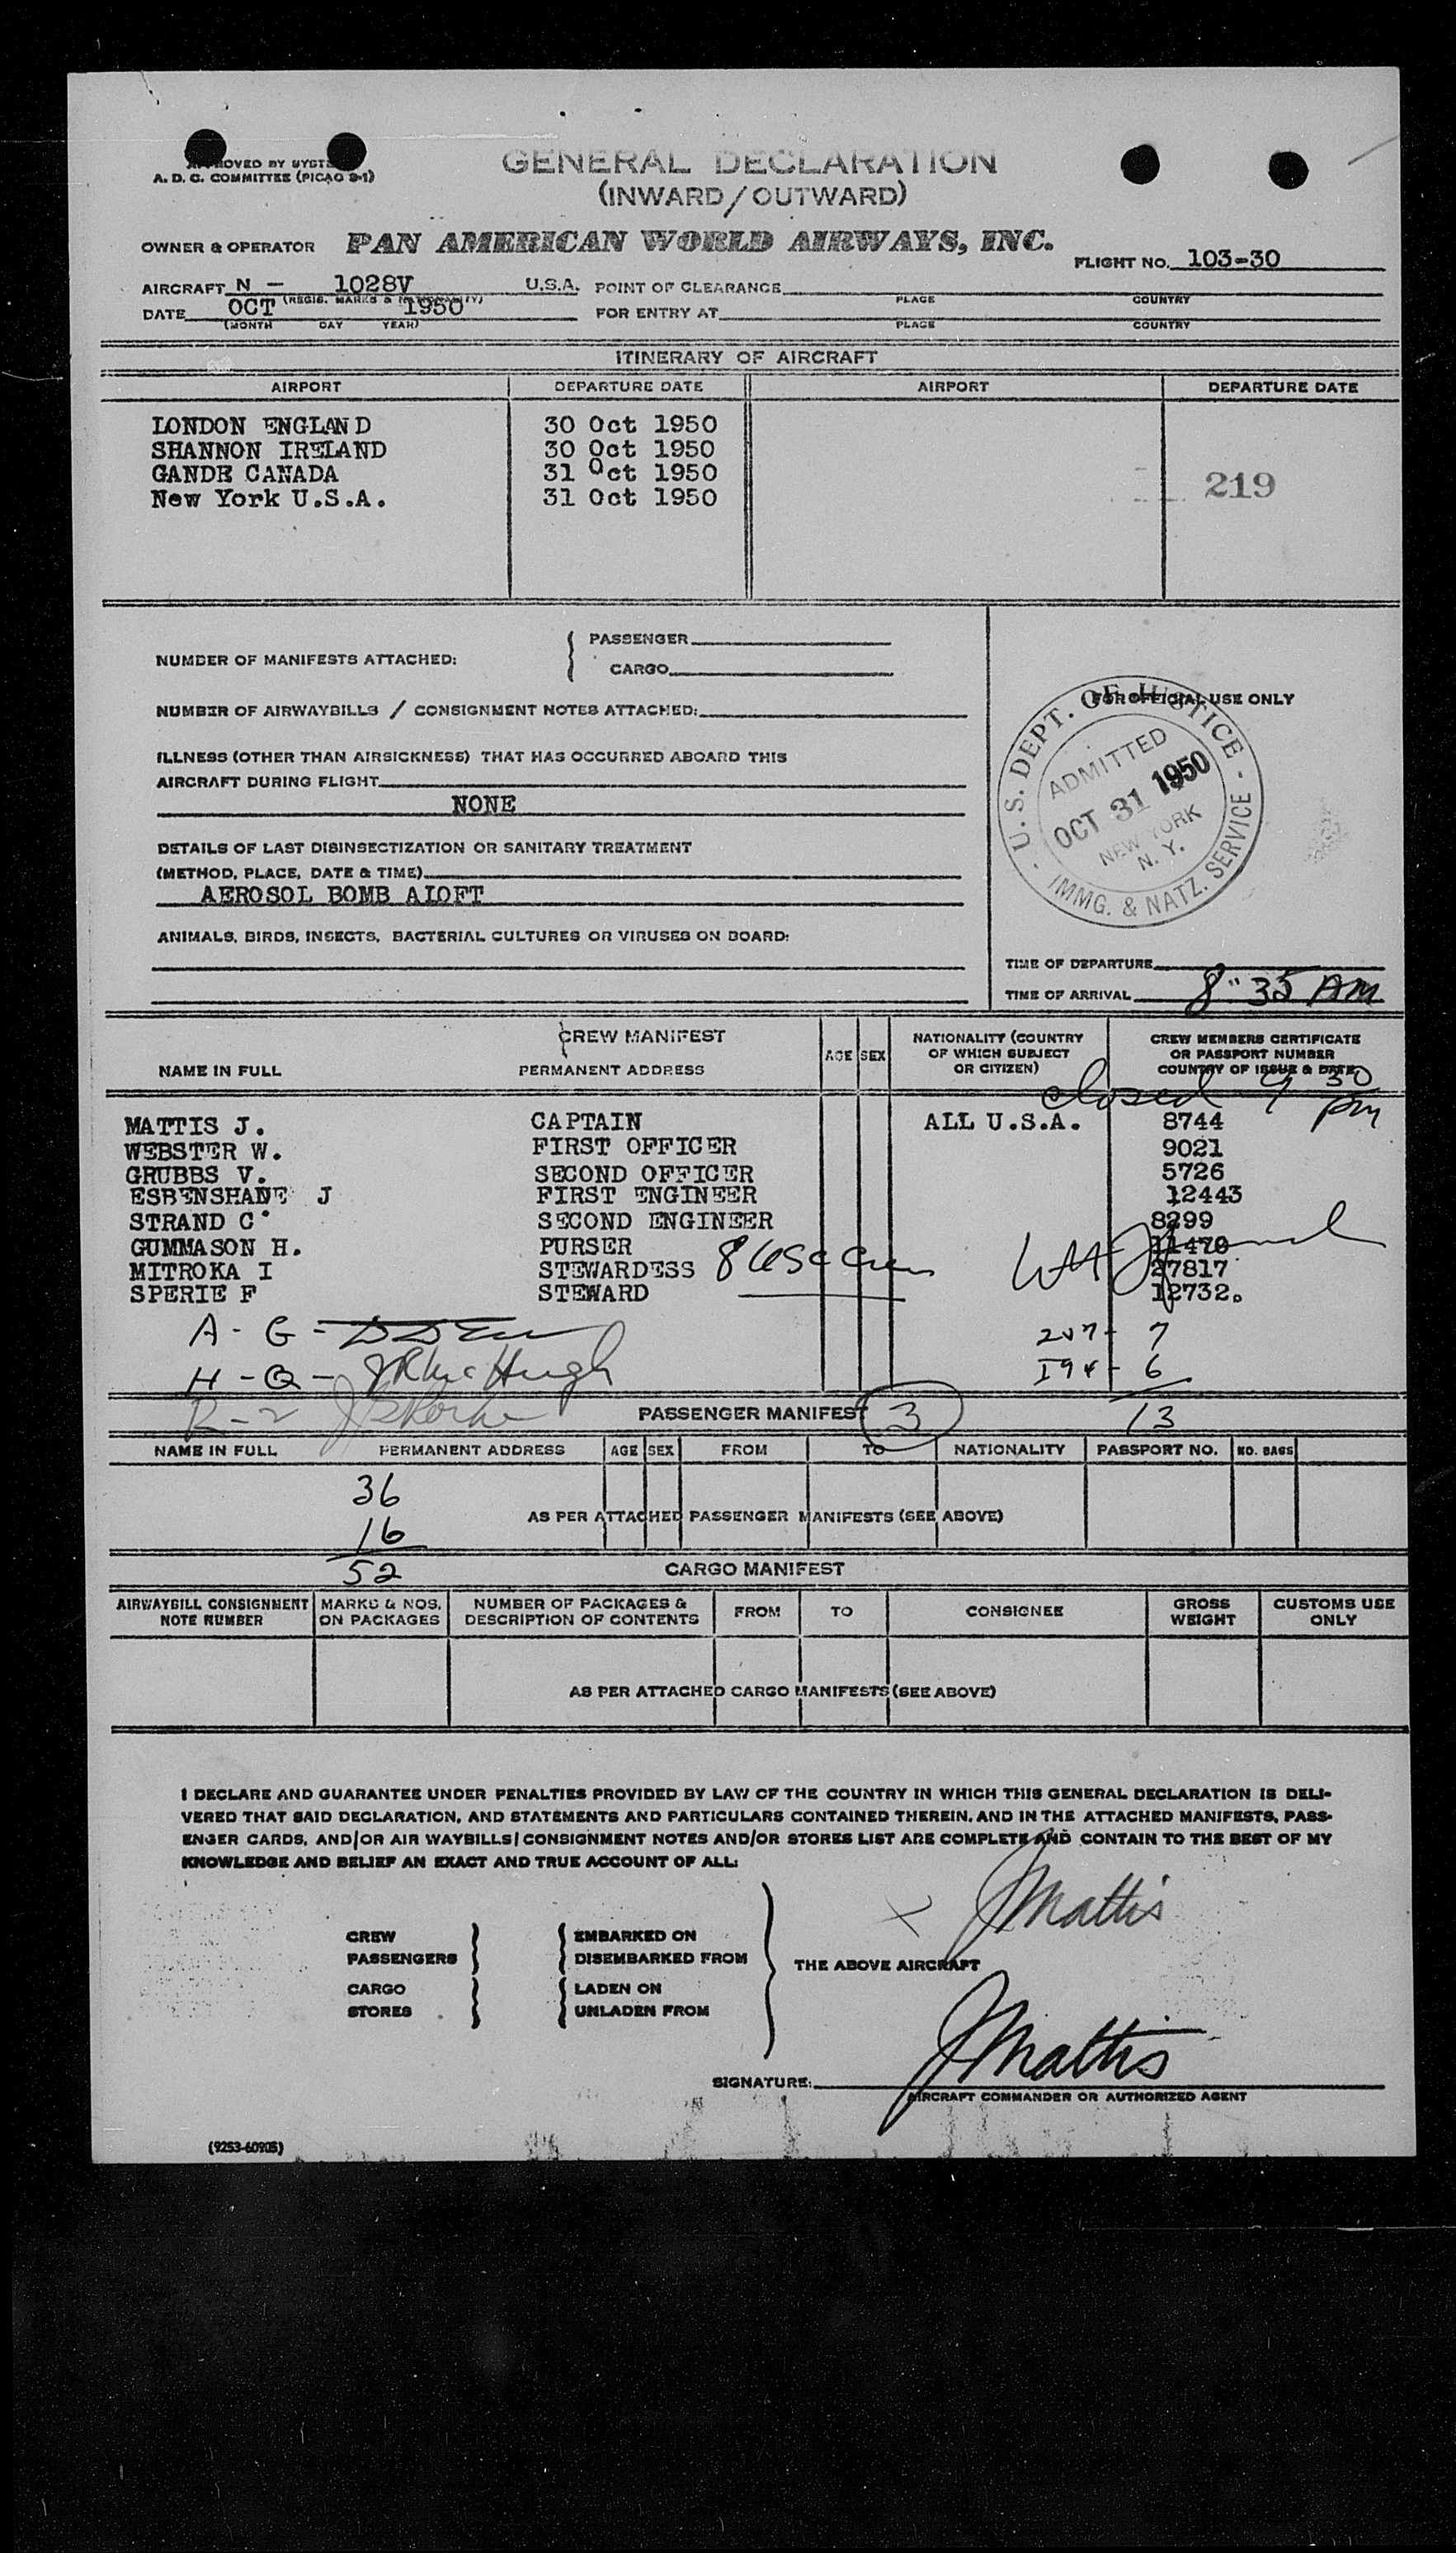 APPROVED BY SYSTEM
A. D. C. COMMITTEE (PICAO 9-1)
GENERAL DECLARATION
(INWARD/OUTWARD)
OWNER & OPERATOR PAN AMERICAN WORLD AIRWAYS, INC.
FLIGHT NO. 103-30
AIRCRAFT N - 1028V U.S.A. POINT OF CLEARANCE
(REGIS. MARKS & NATIONALITY) PLACE COUNTRY
DATE OCT 1950 FOR ENTRY AT
(MONTH DAY YEAR) PLACE COUNTRY
ITINERARY OF AIRCRAFT
AIRPORT DEPARTURE DATE AIRPORT DEPARTURE DATE
LONDON ENGLAND 30 Oct 1950
SHANNON IRELAND 30 Oct 1950
GANDE CANADA 31 Oct 1950
New York U.S.A. 31 Oct 1950
219
NUMBER OF MANIFESTS ATTACHED: PASSENGER
CARGO
NUMBER OF AIRWAYBILLS / CONSIGNMENT NOTES ATTACHED:
ILLNESS (OTHER THAN AIRSICKNESS) THAT HAS OCCURRED ABOARD THIS
AIRCRAFT DURING FLIGHT
NONE
DETAILS OF LAST DISINSECTIZATION OR SANITARY TREATMENT
(METHOD, PLACE, DATE & TIME)
AEROSOL BOMB ALOFT
ANIMALS, BIRDS, INSECTS, BACTERIAL CULTURES OR VIRUSES ON BOARD:
FOR OFFICIAL USE ONLY
U.S. DEPT. OF JUSTICE
ADMITTED
OCT 31 1950
NEW YORK
N. Y.
IMMG. & NATZ. SERVICE
TIME OF DEPARTURE
TIME OF ARRIVAL 8:35 AM
CREW MANIFEST
NAME IN FULL PERMANENT ADDRESS AGE SEX
NATIONALITY (COUNTRY OF WHICH SUBJECT OR CITIZEN)
CREW MEMBERS CERTIFICATE OR PASSPORT NUMBER COUNTRY OF ISSUE & DATE
closed 9 30 pm
MATTIS J. CAPTAIN ALL U.S.A. 8744
WEBSTER W. FIRST OFFICER 9021
GRUBBS V. SECOND OFFICER 5726
ESBENSHADE J FIRST ENGINEER 12443
STRAND C. SECOND ENGINEER 8299
GUMMASON H. PURSER 11470
MITROKA I STEWARDESS 27817
SPERIE F STEWARD 12732.
8 USC Crew
A - G -
H - Q - JR McHugh
R - Z
207 - 7
194 - 6
13
PASSENGER MANIFEST 3
NAME IN FULL PERMANENT ADDRESS AGE SEX FROM TO NATIONALITY PASSPORT NO. NO. BAGS
36
16
52
AS PER ATTACHED PASSENGER MANIFESTS (SEE ABOVE)
CARGO MANIFEST
AIRWAYBILL CONSIGNMENT NOTE NUMBER
MARKS & NOS. ON PACKAGES
NUMBER OF PACKAGES & DESCRIPTION OF CONTENTS
FROM TO CONSIGNEE
GROSS WEIGHT
CUSTOMS USE ONLY
AS PER ATTACHED CARGO MANIFESTS (SEE ABOVE)
I DECLARE AND GUARANTEE UNDER PENALTIES PROVIDED BY LAW OF THE COUNTRY IN WHICH THIS GENERAL DECLARATION IS DELI-
VERED THAT SAID DECLARATION, AND STATEMENTS AND PARTICULARS CONTAINED THEREIN, AND IN THE ATTACHED MANIFESTS, PASS-
ENGER CARDS, AND/OR AIR WAYBILLS/CONSIGNMENT NOTES AND/OR STORES LIST ARE COMPLETE AND CONTAIN TO THE BEST OF MY
KNOWLEDGE AND BELIEF AN EXACT AND TRUE ACCOUNT OF ALL:
J Mattis
CREW EMBARKED ON
PASSENGERS DISEMBARKED FROM
THE ABOVE AIRCRAFT
CARGO LADEN ON
STORES UNLADEN FROM
SIGNATURE: J Mattis
AIRCRAFT COMMANDER OR AUTHORIZED AGENT
(9253-60905)